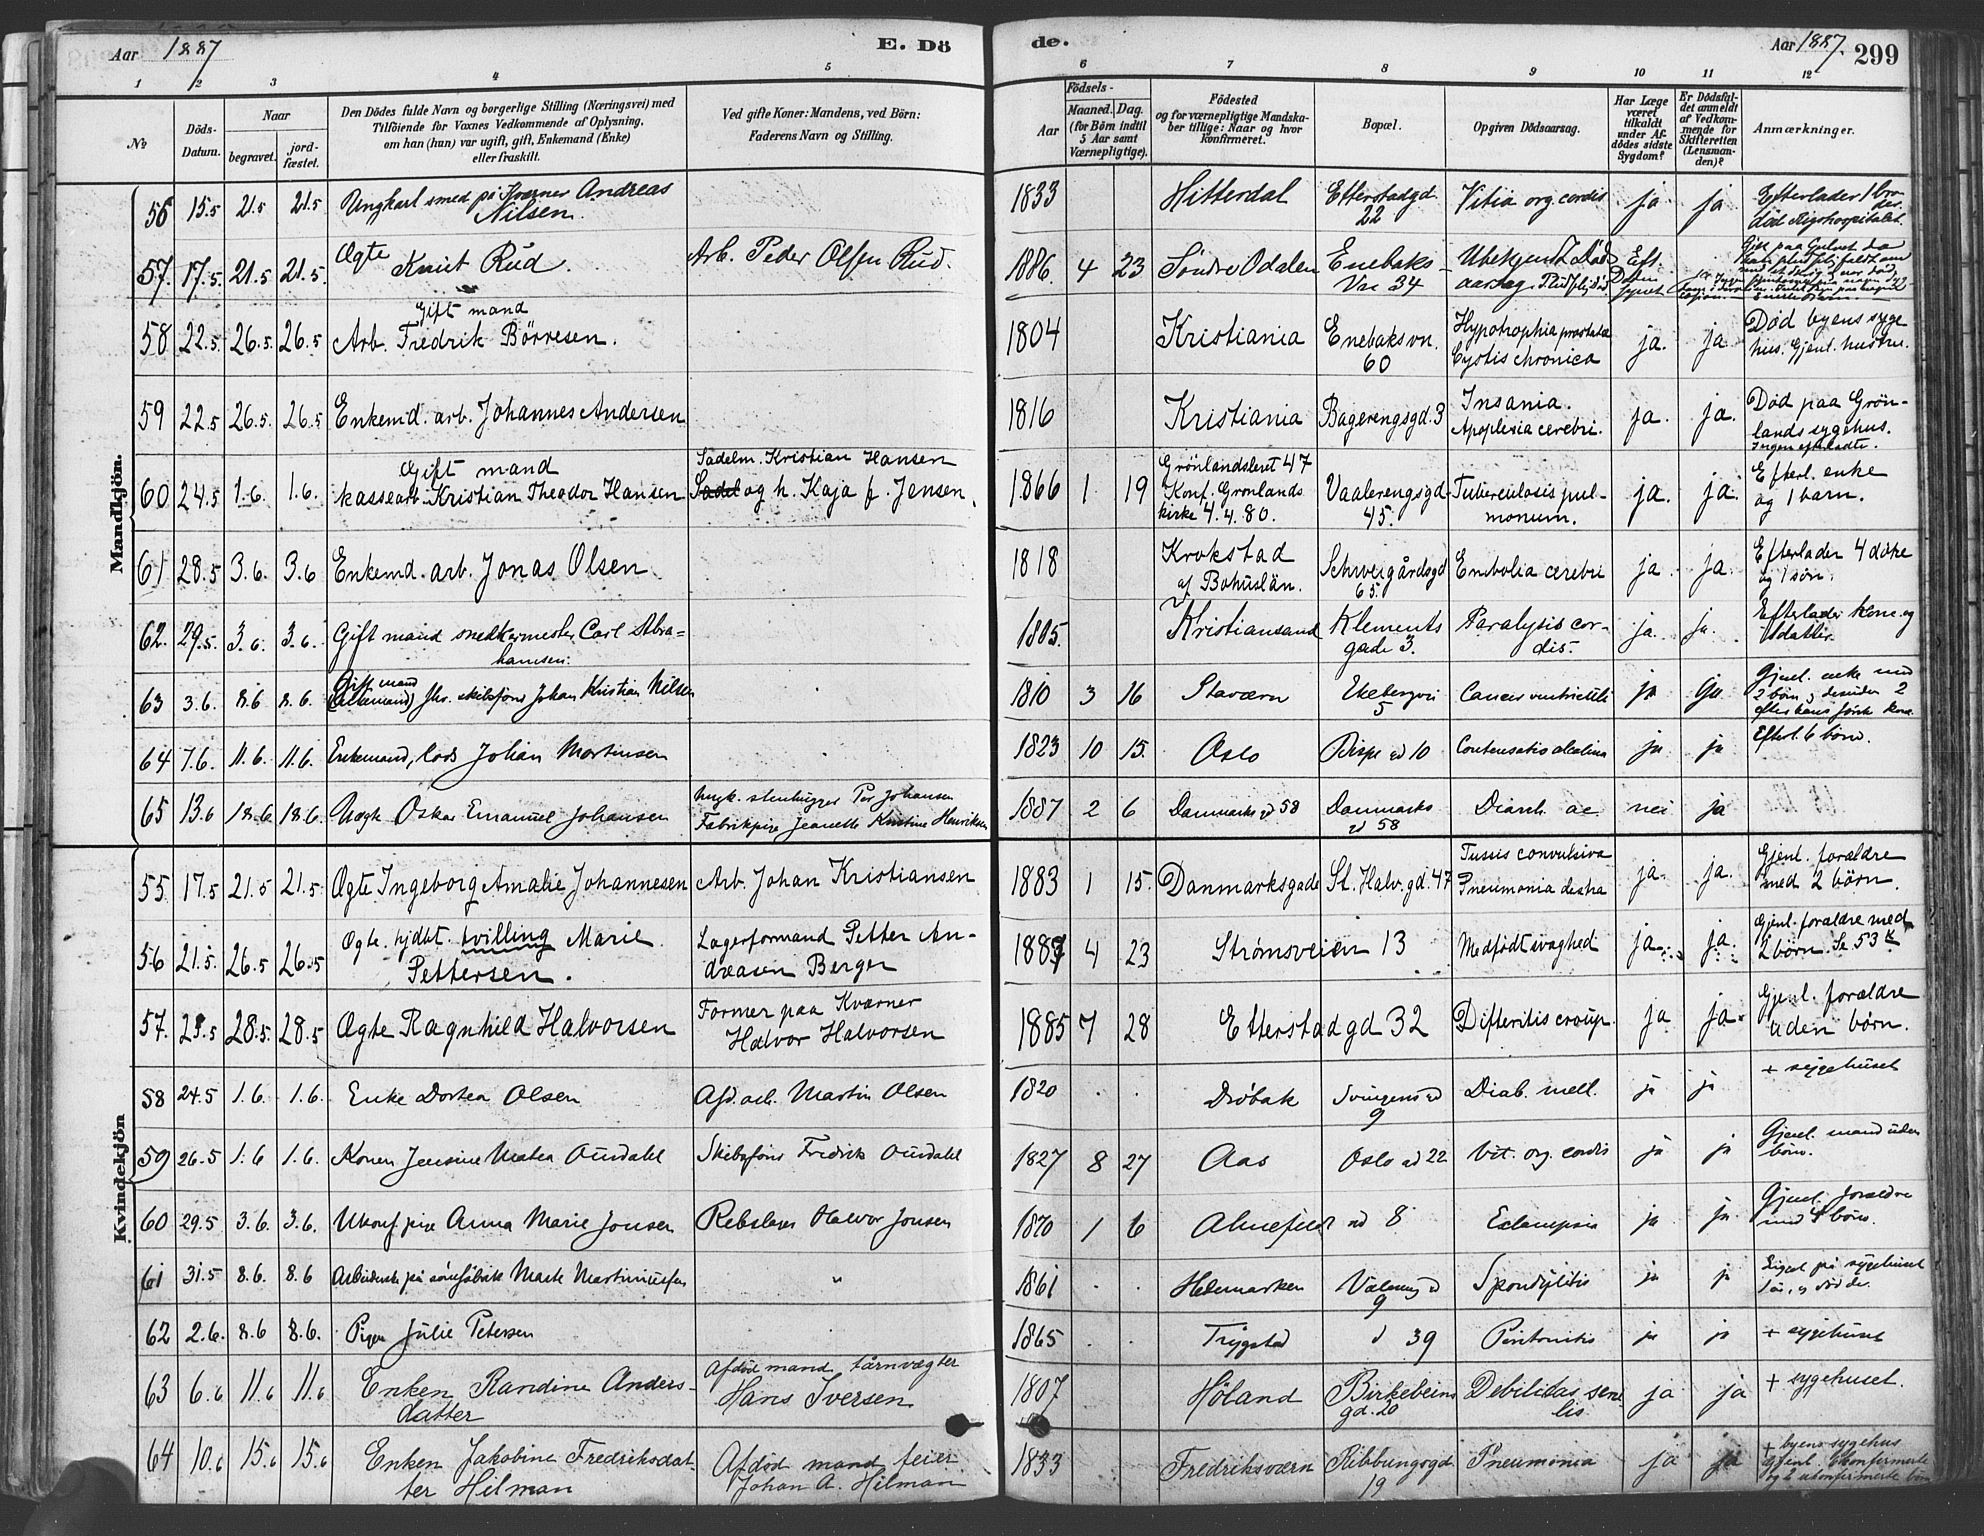 Aar 1887
E. Dö
de.
Aar 1887.
299
1 2 3 4 5 6 7 8 9 10 11 12
No
Döds-
Datum.
Naar
begravet.
jord-
fæstet.
Den Dödes fulde Navn og borgerlige Stilling (Næringsvei) med
Tilföiende for Voxnes Vedkommende af Oplysning,
om han (hun) var ugift, gift, Enkemand (Enke)
eller fraskilt.
Ved gifte Koner: Mandens, ved Börn:
Faderens Navn og Stilling.
Födsels-
Aar
Maaned. Dag.
(for Börn indtil
5 Aar samt
Værnepligtige).
Födested
og for værnepligtige Mandska-
ber tillige: Naar og hvor
konfirmeret.
Bopæl.
Opgiven Dödsaarsag.
Har Læge
været
tilkaldt
under Af-
dödes sidste
Sygdom?
Er Dödsfal-
det anmeldt
af Vedkom-
mende for
Skifteretten
(Lensman-
den)?
Anmærkninger.
Mandkjön.
56 15.5 21.5 21.5 Ungkarl smed på Kværner Andreas
Nilsen.
1833 Hitterdal Etterstadgd
22 Vitia org. cordis ja ja Efterlader 1 bro-
der.
død Rigshospitalet.
57. 17.5 21.5 21.5 Ægte
Knut Rud. Arb. Peder Olsen Rud.
1886. 4 23 Søndre Odalen Enebaks-
Vn 34
58 22.5 26.5 26.5 Gift mand
Arb. Fredrik Börresen.
1804 Kristiania Enebaksvn.
60 Hypotrophia prostatæ
Cystis chronica ja. ja Død byens syge
hus. Gjenl. hustru.
59 22.5 26.5. 26.5 Enkemd. arb. Johannes Andersen
1816 Kristiania Bagerengsgd. 3 Insania.
Apoplexia cerebri. ja. ja. Død paa Grøn-
lands sygehus.
Ingen efterladte.
60 24.5 1.6. 1.6. Gift mand
kassearb. Kristian Theodor Hansen Sadelm. Kristian Hansen
og h. Kaja f. Jensen.
1866 1 19 Grönlandsleret 47
Konf. Grønlands
kirke 4.4.80. Vaalerengsgd.
45. Tuberculosis pul-
monum. ja. ja. Efterl. enke
og 1 barn.
61 28.5 3.6. 3.6 Enkemd. arb. Jonas Olsen.
1818 Krokstad
af Bohuslän. Schweigårdsgd
65. Embolia cerebri ja. ja. Efterlader 4 døtre
og 1 søn.
62. 29.5 3.6. 3.6. Gift mand snedkermester Carl Abra-
hamsen.
1805. Kristiansand Klements
gade 3. Paralysis cor-
dis. ja. ja. Efterlader kone og
1 datter.
63 3.6. 8.6 8.6. Gift mand
Johan Kristian Nilsen
1810 3 16 Staværn Ekebergvei
5 Cancer ventriculi ja ja Gjenl. enke med
2 børn, desuden 2
efter hans første kone.
64 7.6. 11.6. 11.6. Enkemand, lods Johan Martinsen
1823 10 15. Oslo Bispegd 10 ja ja Efterl. 6 børn.
65 13.6 18.6 18.6. Uægte Oskar Emanuel Johansen Ungk. stenhugger Per Johansen
Fabrikpige Jeanette Kristine Henriksen
1887 2 6 Danmarksgd 58 Danmarks
gd 58 Diarrh. ac. nei ja
Kvindekjön
55 17.5 21.5 21.5 Ægte Ingeborg Amalie Johannesen Arb. Johan Kristiansen
1883 1 15. Danmarksgade St. Halv. gd. 47 Tussis convulsiva
Pneumonia dextra ja. ja. Gjenl. forældre
med 2 børn.
56 21.5. 26.5 26.5 Ægte. hjdbt. tvilling Marie
Pettersen. Lagerformand Petter An-
dreasen Berger
1887 4 23 Strømsveien 13 Medfødt svaghed ja. ja. Gjenl. forældre med
2 børn. Se 53 K
57. 23.5 28.5. 28.5 Ægte Ragnhild Halvorsen Former paa Kværner
Halvor Halvorsen
1885 7 28 Etterstadgd 32 Difteritis croup. ja ja. Gjenl. forældre
uden børn.
58 24.5 1.6. 1.6. Enke Dortea Olsen Afd. arb. Martin Olsen
1820 . . Drøbak Svingensgd
9 Diab. mell. ja ja + sygehuset
59 26.5 1.6 1.6. Konen Jensine Matea Ourdahl Skibsfører Fredrik Ourdahl
1827 8 27 Aas Oslogd 22 Vit. org. cordis ja ja Gjenl. mand uden
børn.
60 29.5 3.6. 3.6. Ukonf. pige Anna Marie Jonsen Rebslager Halvor Jonsen
1870 1 6 gd 8 Eclampsia ja ja. Gjenl. forældre
med 4 børn.
61 31.5 8.6. 8.6 Arbeiderske på sömfabrik Marte Martiniussen "
1861 . . Hedemarken Valerenggd
9 Spondylitis ja ja på sygehuset
62 2.6. 8.6 8.6. Pigen Julie Petersen
1865 . . Trygstad d 39 Peritonitis ja ja + sygehuset
63 6.6 11.6 11.6 Enken Randine Anders-
datter Afdöd mand tårnvægter
Hans Iversen
1807 Høland Birkebeins
gd. 20 Debilitas seni-
lis ja ja + sygehuset.
64 10.6 15.6 15.6 Enken Jakobine Fredriksdat-
ter Hilman Afdöd mand feier
Johan A. Hilman
1833 Fredriksværn Ribbungsgd
19 Pneumonia ja ja + byens sygehus
Gjenl. 6 konfirmerte
og 2 ukonfirmerte børn